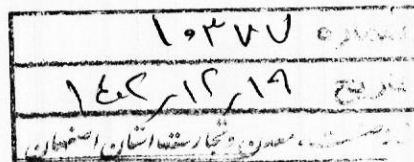 شماره ۱۰۳۷۷
تاریخ ۱۴۰۲/۱۲/۱۹
صنعت، معدن و تجارت استان اصفهان